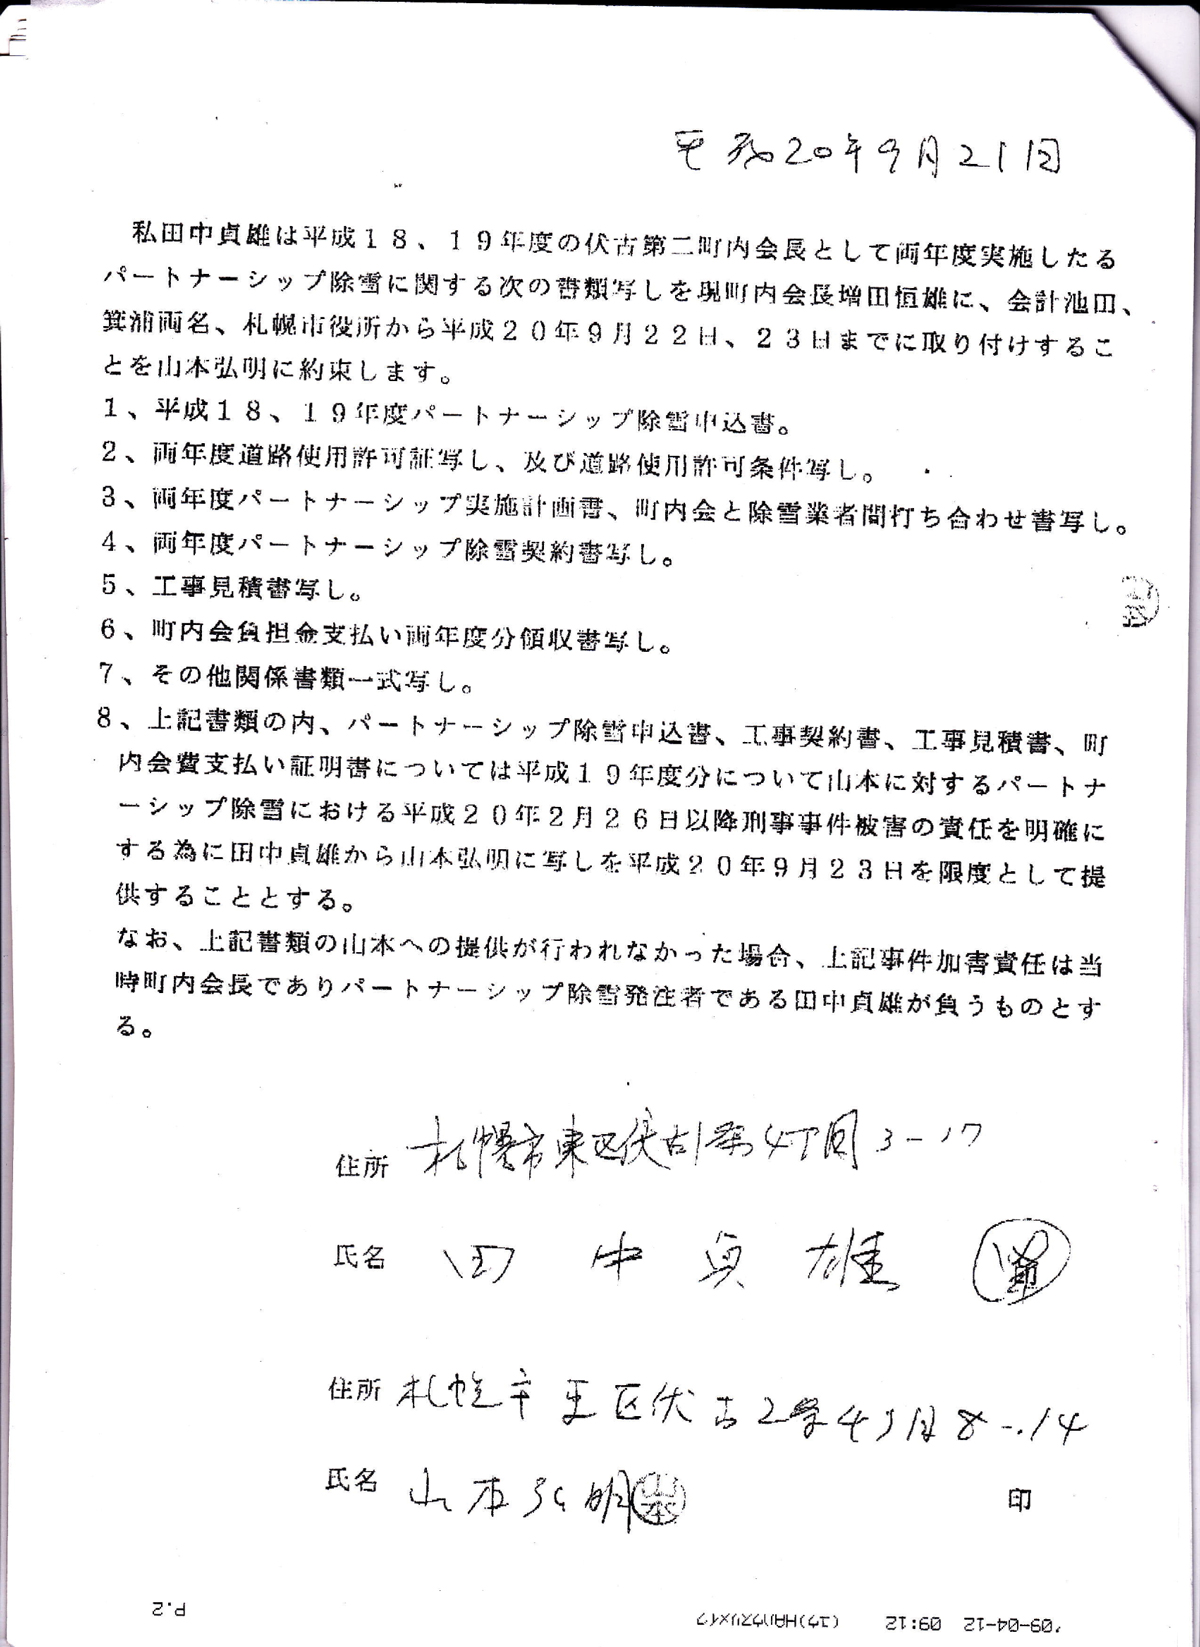 平成20年9月21日
私田中貞雄は平成１８、１９年度の伏古第二町内会長として両年度実施したる
パートナーシップ除雪に関する次の書類写しを現町内会長増田恒雄に、会計池田、
箕浦両名、札幌市役所から平成２０年９月２２日、２３日までに取り付けするこ
とを山本弘明に約束します。
１、平成１８、１９年度パートナーシップ除雪申込書。
２、両年度道路使用許可証写し、及び道路使用許可条件写し。
３、両年度パートナーシップ実施計画書、町内会と除雪業者間打ち合わせ書写し。
４、両年度パートナーシップ除雪契約書写し。
５、工事見積書写し。
６、町内会負担金支払い両年度分領収書写し。
７、その他関係書類一式写し。
８、上記書類の内、パートナーシップ除雪申込書、工事契約書、工事見積書、町
内会費支払い証明書については平成１９年度分について山本に対するパートナ
ーシップ除雪における平成２０年２月２６日以降刑事事件被害の責任を明確に
する為に田中貞雄から山本弘明に写しを平成２０年９月２３日を限度として提
供することとする。
なお、上記書類の山本への提供が行われなかった場合、上記事件加害責任は当
時町内会長でありパートナーシップ除雪発注者である田中貞雄が負うものとす
る。
住所 札幌市東区伏古1条4丁目3-17
氏名 田中貞雄
住所 札幌市東区伏古2条4丁目8-14
氏名 山本弘明 山本 印
'09-04-12 09:12 (ユウ)HAハウスリメイク P.2